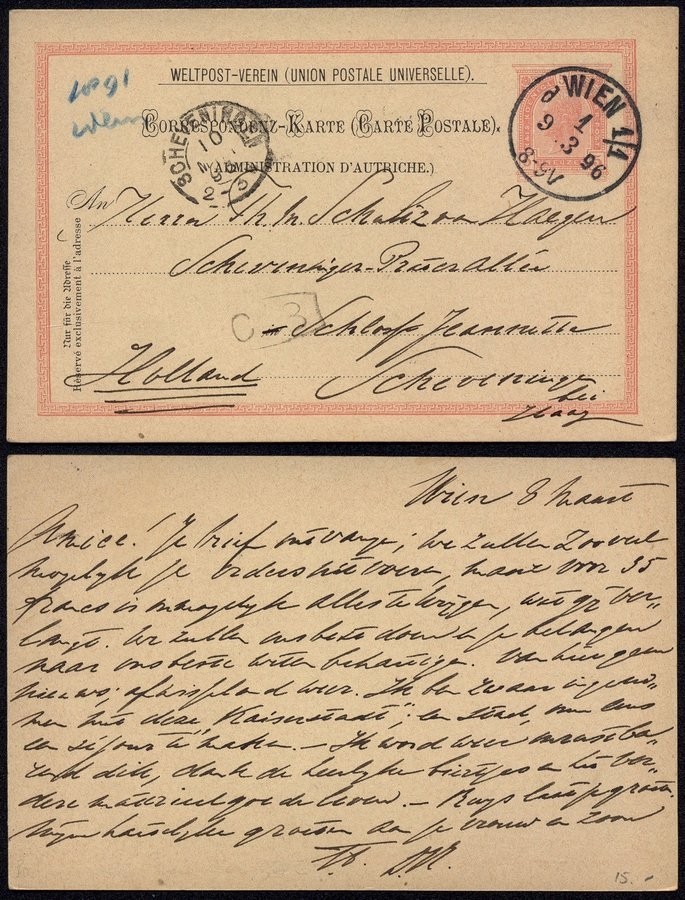 WELTPOST-VEREIN (UNION POSTALE UNIVERSELLE).
CORRESPONDENZ-KARTE (CARTE POSTALE).
(ADMINISTRATION D'AUTRICHE.)
WIEN 1/1
1
9 3 96
8-9V
SCHEVENINGEN
10
An
Nur für die Adresse
Réservé exclusivement à l'adresse
Herrn Th. M. Schultz van Haegen
Scheveninger
Schloss Jeannette
Holland Scheveningen
bei
Haag
C 3
Wien 8 Maart
Amice! Je brief ontvangen; we zullen zooveel
mogelijk je orders uitvoeren, maar voor 35
francs is onmogelijk alles te krijgen, wat gij ver-
langt. We zullen ons best doen en je belangen
naar ons beste weten behartigen. Van hier geen
nieuws; afwisselend weer. Ik ben zwaar ingeno-
men met deze "Kaiserstadt"; een stad, om eens
een séjour te maken. - Ik word weer
dik, dank de heerlijke biertjes en het ver-
dere materieel goede leven. - Buys laat je groeten.
Mijn hartelijke groeten aan je vrouw en zoon
15.-